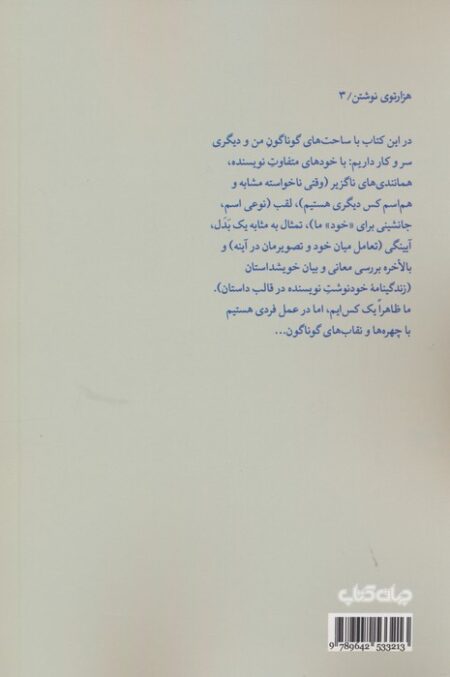 هزارتوی نوشتن/ ۳
در این کتاب با ساحت‌های گوناگونِ من و دیگری
سر و کار داریم: با خودهای متفاوتِ نویسنده،
همانندی‌های ناگزیر (وقتی ناخواسته مشابه و
هم‌اسم کس دیگری هستیم)، لقب (نوعی اسم،
جانشینی برای «خود» ما)، تمثال به مثابه یک بَدَل،
آیینگی (تعامل میان خود و تصویرمان در آینه) و
بالأخره بررسی معانی و بیان خویشداستان
(زندگینامهٔ خودنوشتِ نویسنده در قالب داستان).
ما ظاهراً یک کس‌ایم، اما در عمل فردی هستیم
با چهره‌ها و نقاب‌های گوناگون...
جهان کتاب
9 789642 533213